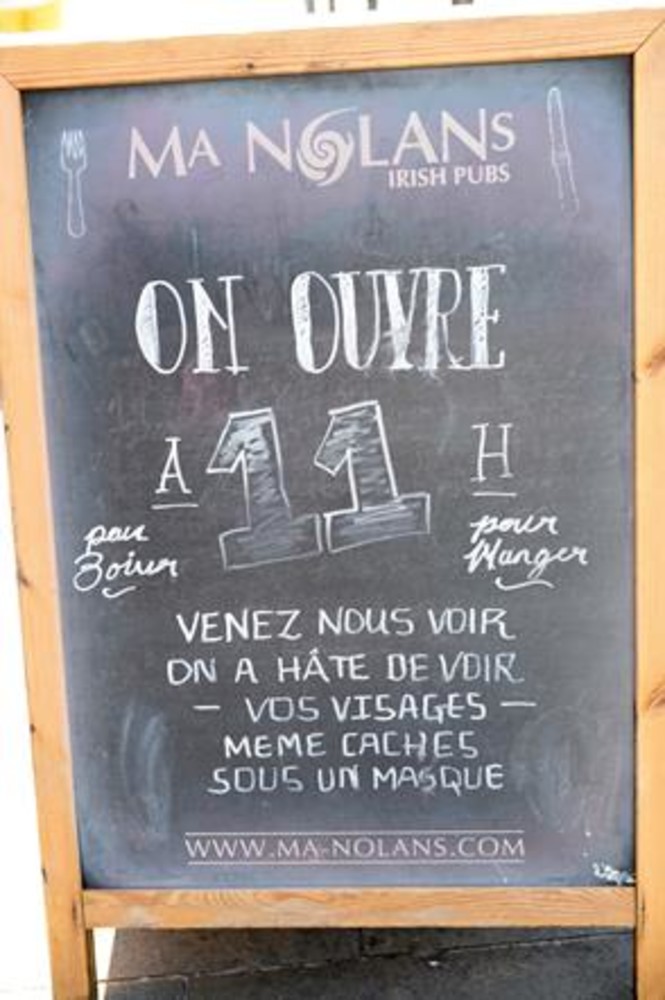 MA NOLANS
IRISH PUBS
ON OUVRE
A 11 H
pour
Boire
pour
Manger
VENEZ NOUS VOIR
ON A HÂTE DE VOIR
— VOS VISAGES —
MEME CACHES
SOUS UN MASQUE
WWW.MA-NOLANS.COM